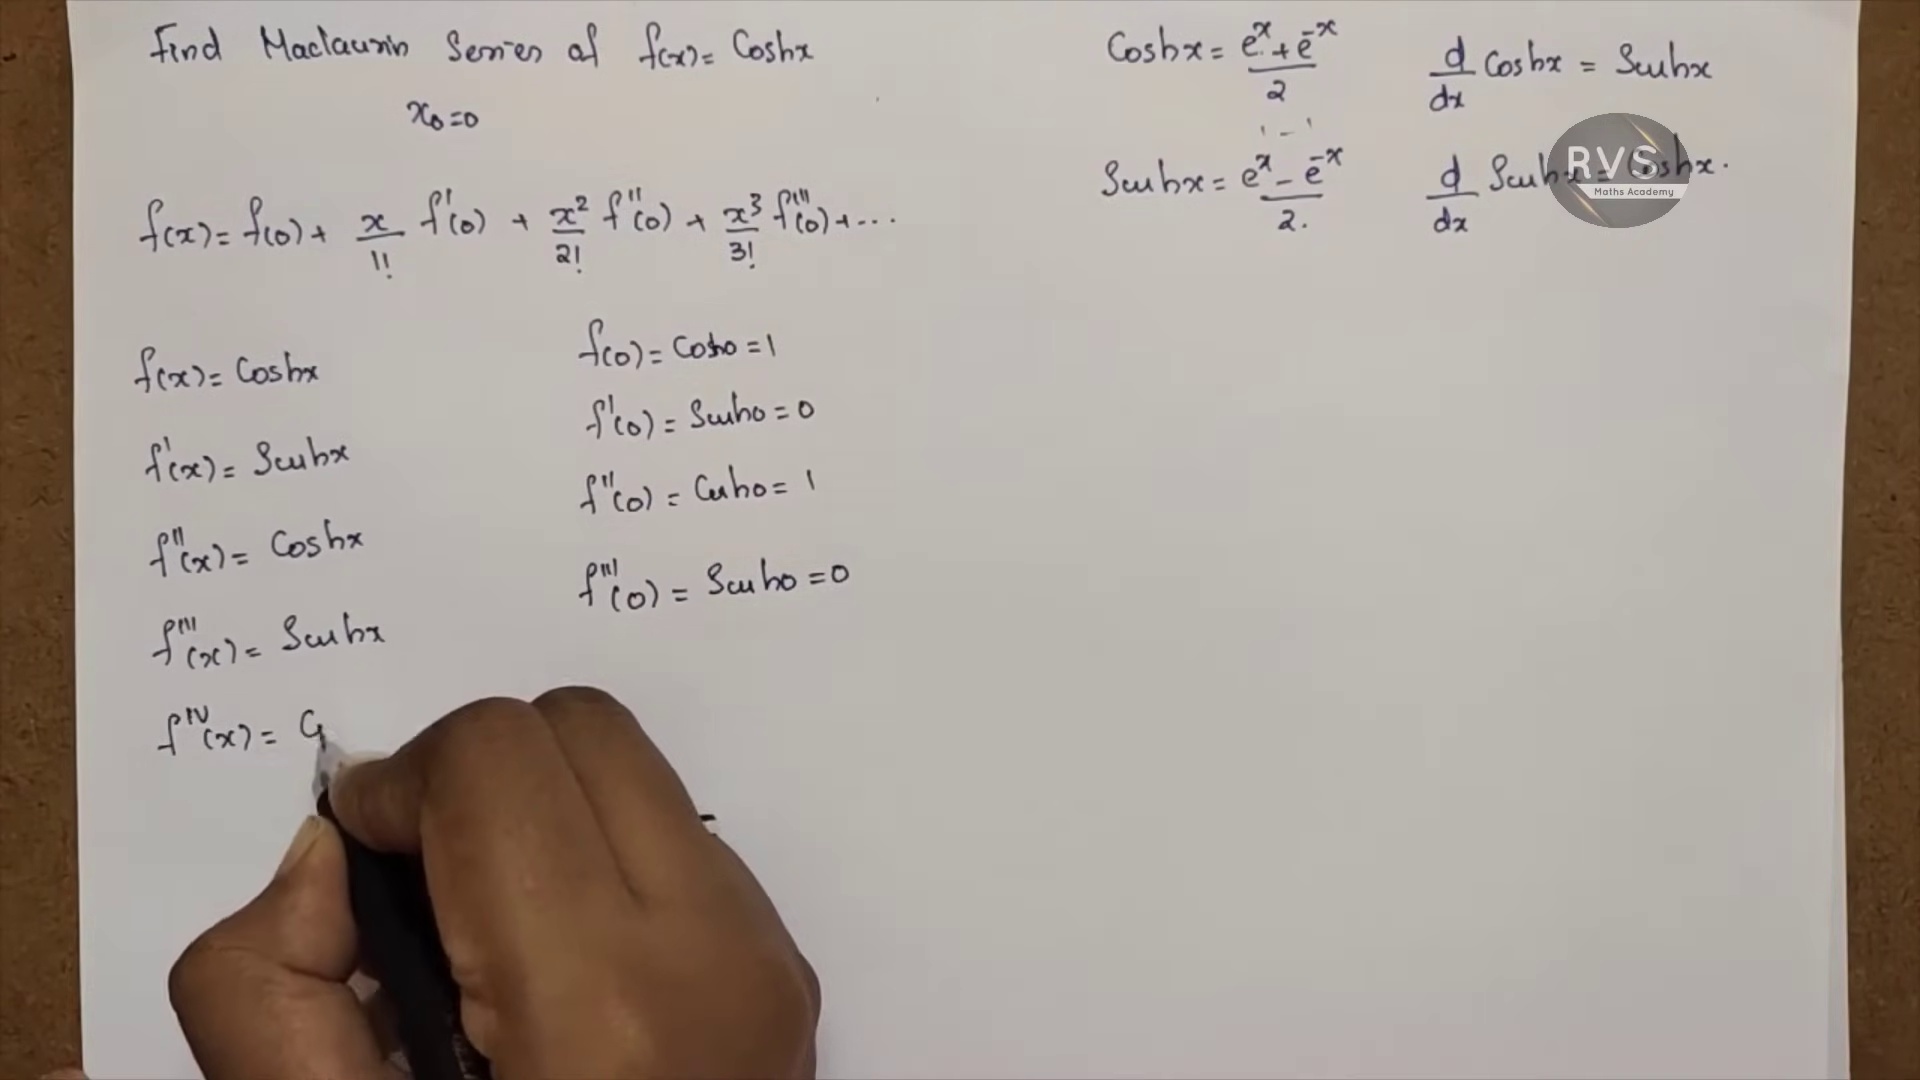 Find Maclaurin Series of f(x) = Coshx
x₀=0
f(x) = f(0) + x/1! f'(0) + x²/2! f''(0) + x³/3! f'''(0) + ...
f(x) = Coshx
f'(x) = Sinhx
f''(x) = Coshx
f'''(x) = Sinhx
f^IV(x) = C
f(0) = Cosh0 = 1
f'(0) = Sinh0 = 0
f''(0) = Cosh0 = 1
f'''(0) = Sinh0 = 0
Coshx = e^x + e^-x / 2
d/dx Coshx = Sinhx
Sinhx = e^x - e^-x / 2.
d/dx Sinhx = Coshx.
RVS
Maths Academy